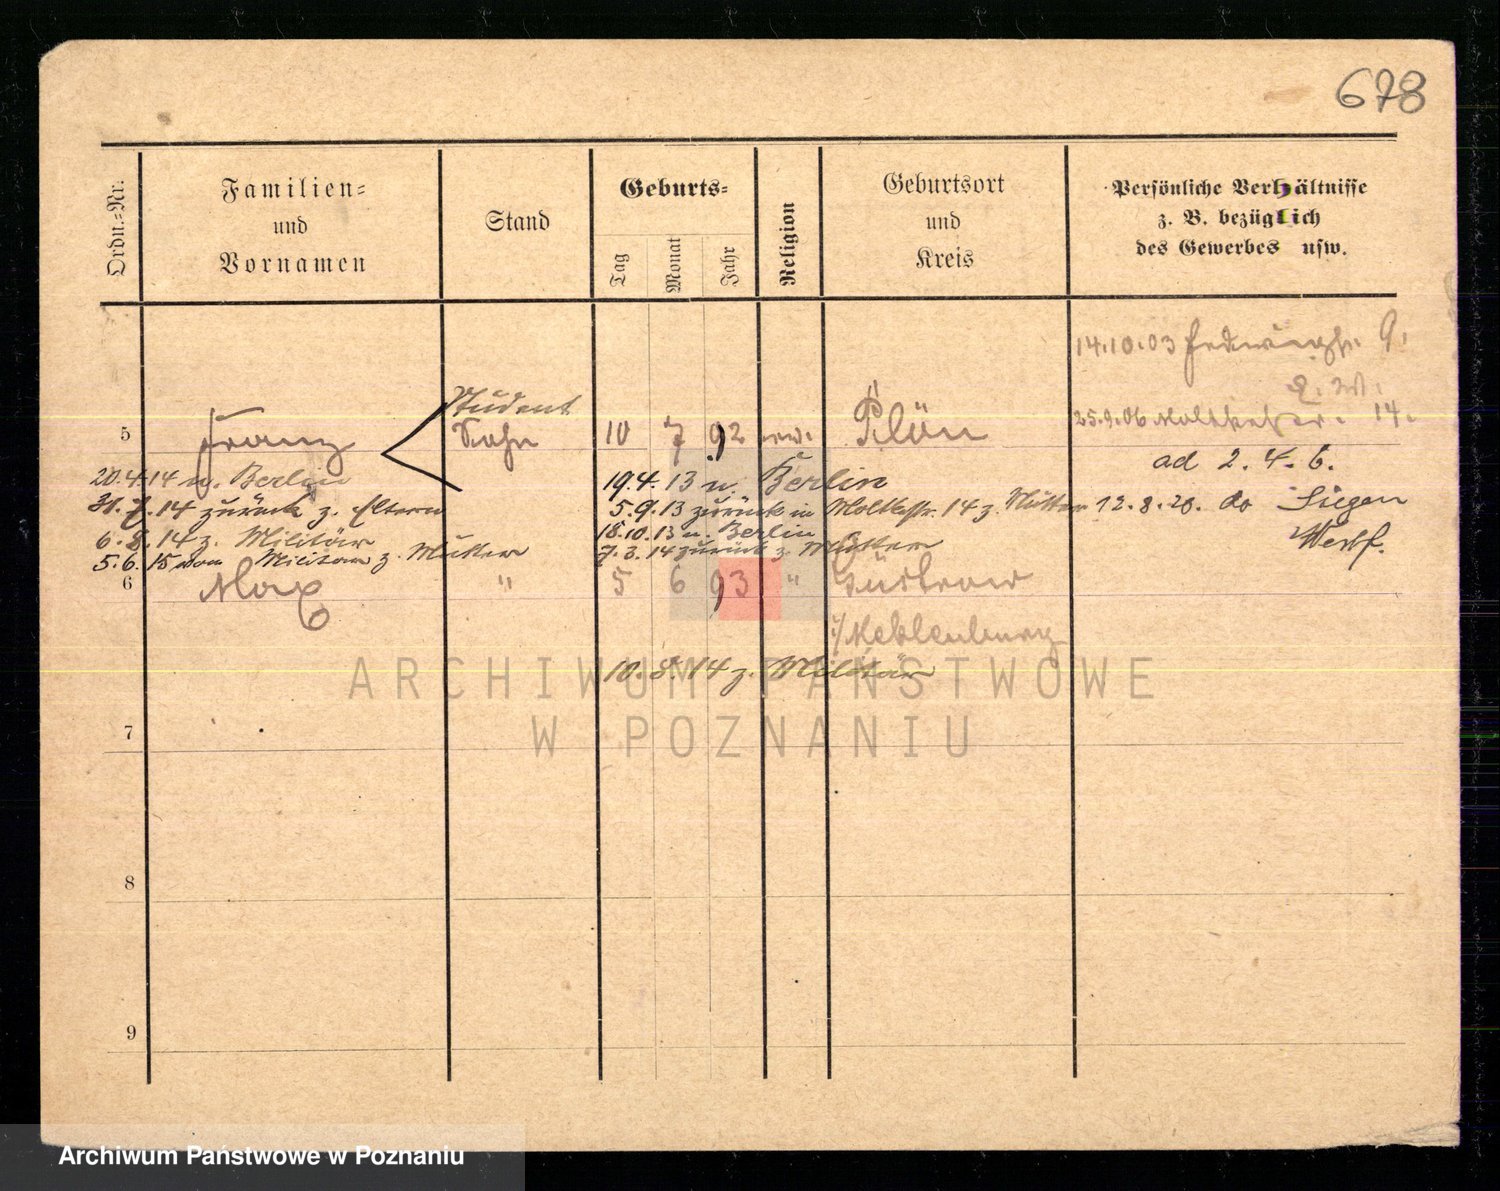 678
Ordn.=Nr.
Familien=
und
Vornamen
Stand
Geburts=
Tag
Monat
Jahr
Religion
Geburtsort
und
Kreis
Persönliche Verhältnisse
z. B. bezüglich
des Gewerbes usw.
14.10.03 9.
25.9.06 Moltkestr. 14.
ad 2.4.6.
12.8.20. do Siegen
Westf.
5 Franz Student
Sohn 10 7 92 Plön
20.4.14 n. Berlin
31.7.14 zurück z. Eltern
6.8.14 z. Militär
5.6.15 vom Militär z. Mutter
19.4.13 n. Berlin
5.9.13 zurück in Moltkestr. 14 z. Mutter
18.10.13 n. Berlin
7.3.14 zurück z. Mutter
6 Max " 5 6 93 " Güstrow
i/Meklenburg
10.8.14 z. Militär
7
8
9
ARCHIWUM PAŃSTWOWE
W POZNANIU
Archiwum Państwowe w Poznaniu